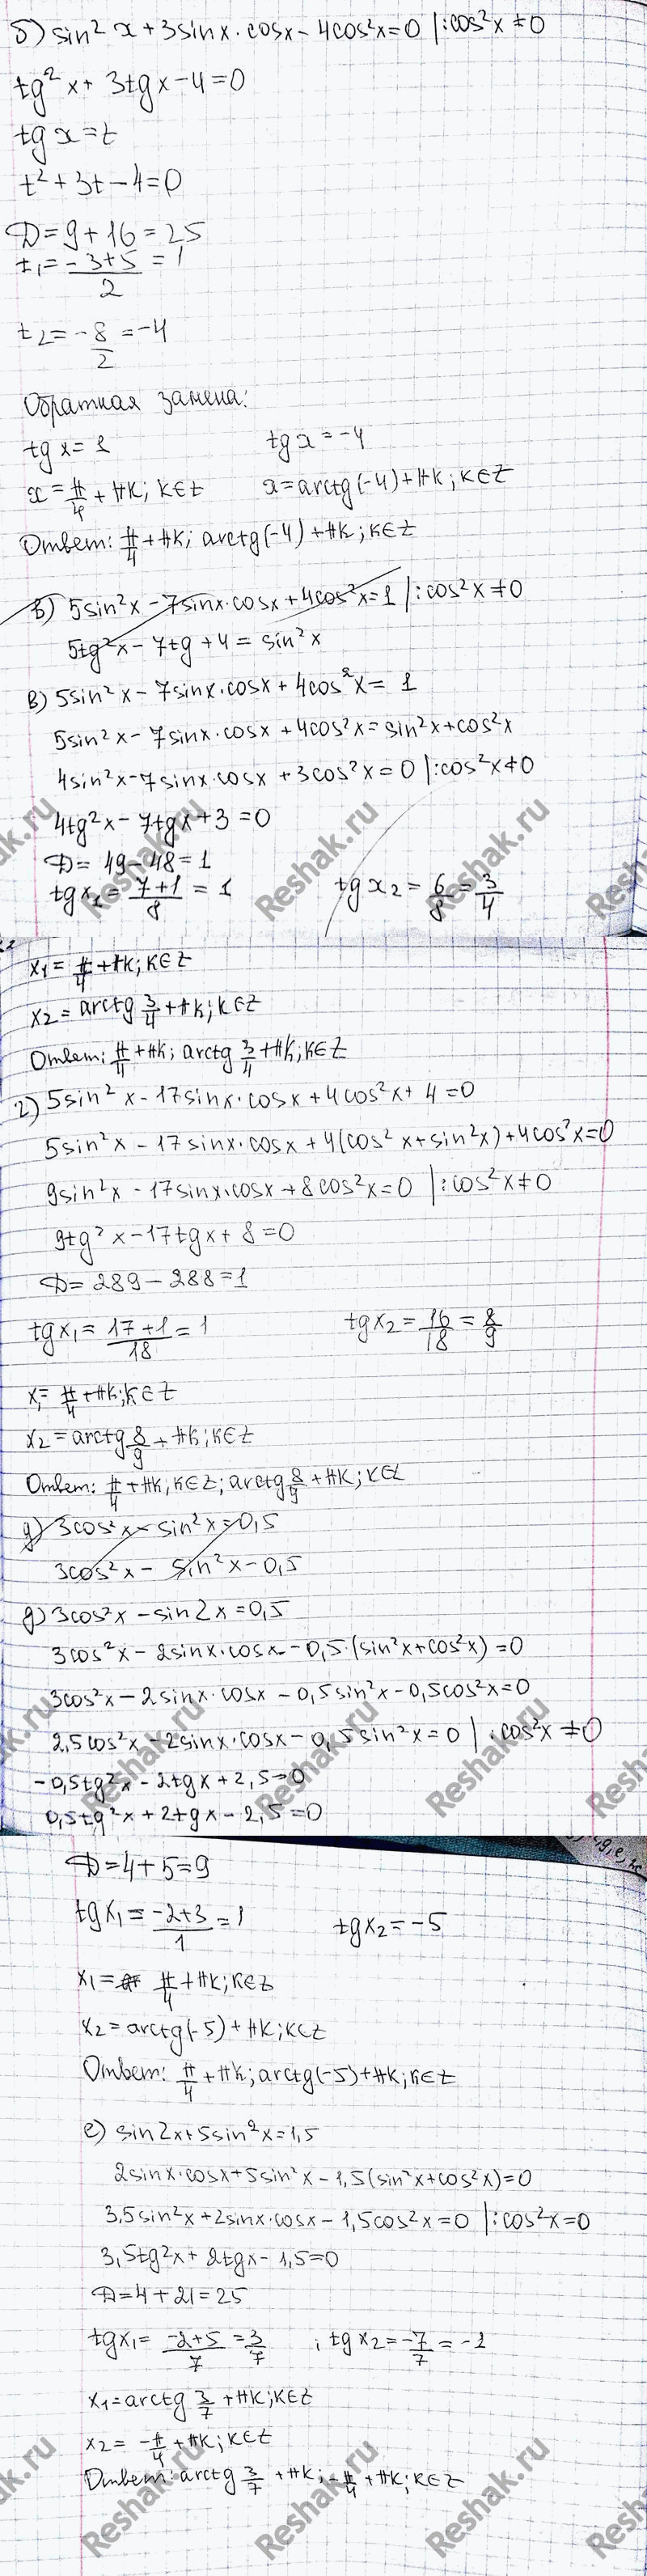 б) sin² x + 3sinx · cosx - 4cos²x = 0 |:cos²x ≠ 0
tg² x + 3tgx - 4 = 0
tg x = t
t² + 3t - 4 = 0
D = 9 + 16 = 25
t₁ = (-3+5)/2 = 1
t₂ = -8/2 = -4
Обратная замена:
tg x = 1 tg x = -4
x = π/4 + πk; k∈Z x = arctg(-4) + πk; k∈Z
Ответ: π/4 + πk; arctg(-4) + πk; k∈Z
в) 5sin²x - 7sinx·cosx + 4cos²x = 1 |:cos²x ≠ 0
5tg²x - 7tg + 4 = sin²x
в) 5sin²x - 7sinx·cosx + 4cos²x = 1
5sin²x - 7sinx·cosx + 4cos²x = sin²x + cos²x
4sin²x - 7sinx·cosx + 3cos²x = 0 |:cos²x ≠ 0
4tg²x - 7tgx + 3 = 0
D = 49 - 48 = 1
tgx₁ = (7+1)/8 = 1 tgx₂ = 6/8 = 3/4
x₁ = π/4 + πk; k∈Z
x₂ = arctg 3/4 + πk; k∈Z
Ответ: π/4 + πk; arctg 3/4 + πk; k∈Z
г) 5sin² x - 17sinx·cosx + 4cos²x + 4 = 0
5sin²x - 17sinx·cosx + 4(cos²x + sin²x) + 4cos²x = 0
9sin²x - 17sinx·cosx + 8cos²x = 0 |:cos²x ≠ 0
9tg² x - 17tgx + 8 = 0
D = 289 - 288 = 1
tgx₁ = (17+1)/18 = 1 tgx₂ = 16/18 = 8/9
x₁ = π/4 + πk; k∈Z
x₂ = arctg 8/9 + πk; k∈Z
Ответ: π/4 + πk; k∈Z; arctg 8/9 + πk; k∈Z
д) 3cos²x - sin²x = 0,5
3cos²x - sin²x - 0,5
д) 3cos²x - sin2x = 0,5
3cos²x - 2sinx·cosx - 0,5·(sin²x + cos²x) = 0
3cos²x - 2sinx·cosx - 0,5sin²x - 0,5cos²x = 0
2,5cos²x - 2sinx·cosx - 0,5sin²x = 0 |:cos²x ≠ 0
-0,5tg²x - 2tgx + 2,5 = 0
0,5tg²x + 2tgx - 2,5 = 0
D = 4 + 5 = 9
tgx₁ = (-2+3)/1 = 1 tgx₂ = -5
x₁ = π/4 + πk; k∈Z
x₂ = arctg(-5) + πk; k∈Z
Ответ: π/4 + πk; arctg(-5) + πk; k∈Z
е) sin2x + 5sin²x = 1,5
2sinx·cosx + 5sin²x - 1,5(sin²x + cos²x) = 0
3,5sin²x + 2sinx·cosx - 1,5cos²x = 0 |:cos²x = 0
3,5tg²x + 2tgx - 1,5 = 0
D = 4 + 21 = 25
tgx₁ = (-2+5)/7 = 3/7 ; tgx₂ = -7/7 = -1
x₁ = arctg 3/7 + πk; k∈Z
x₂ = -π/4 + πk; k∈Z
Ответ: arctg 3/7 + πk; -π/4 + πk; k∈Z
Reshak.ru